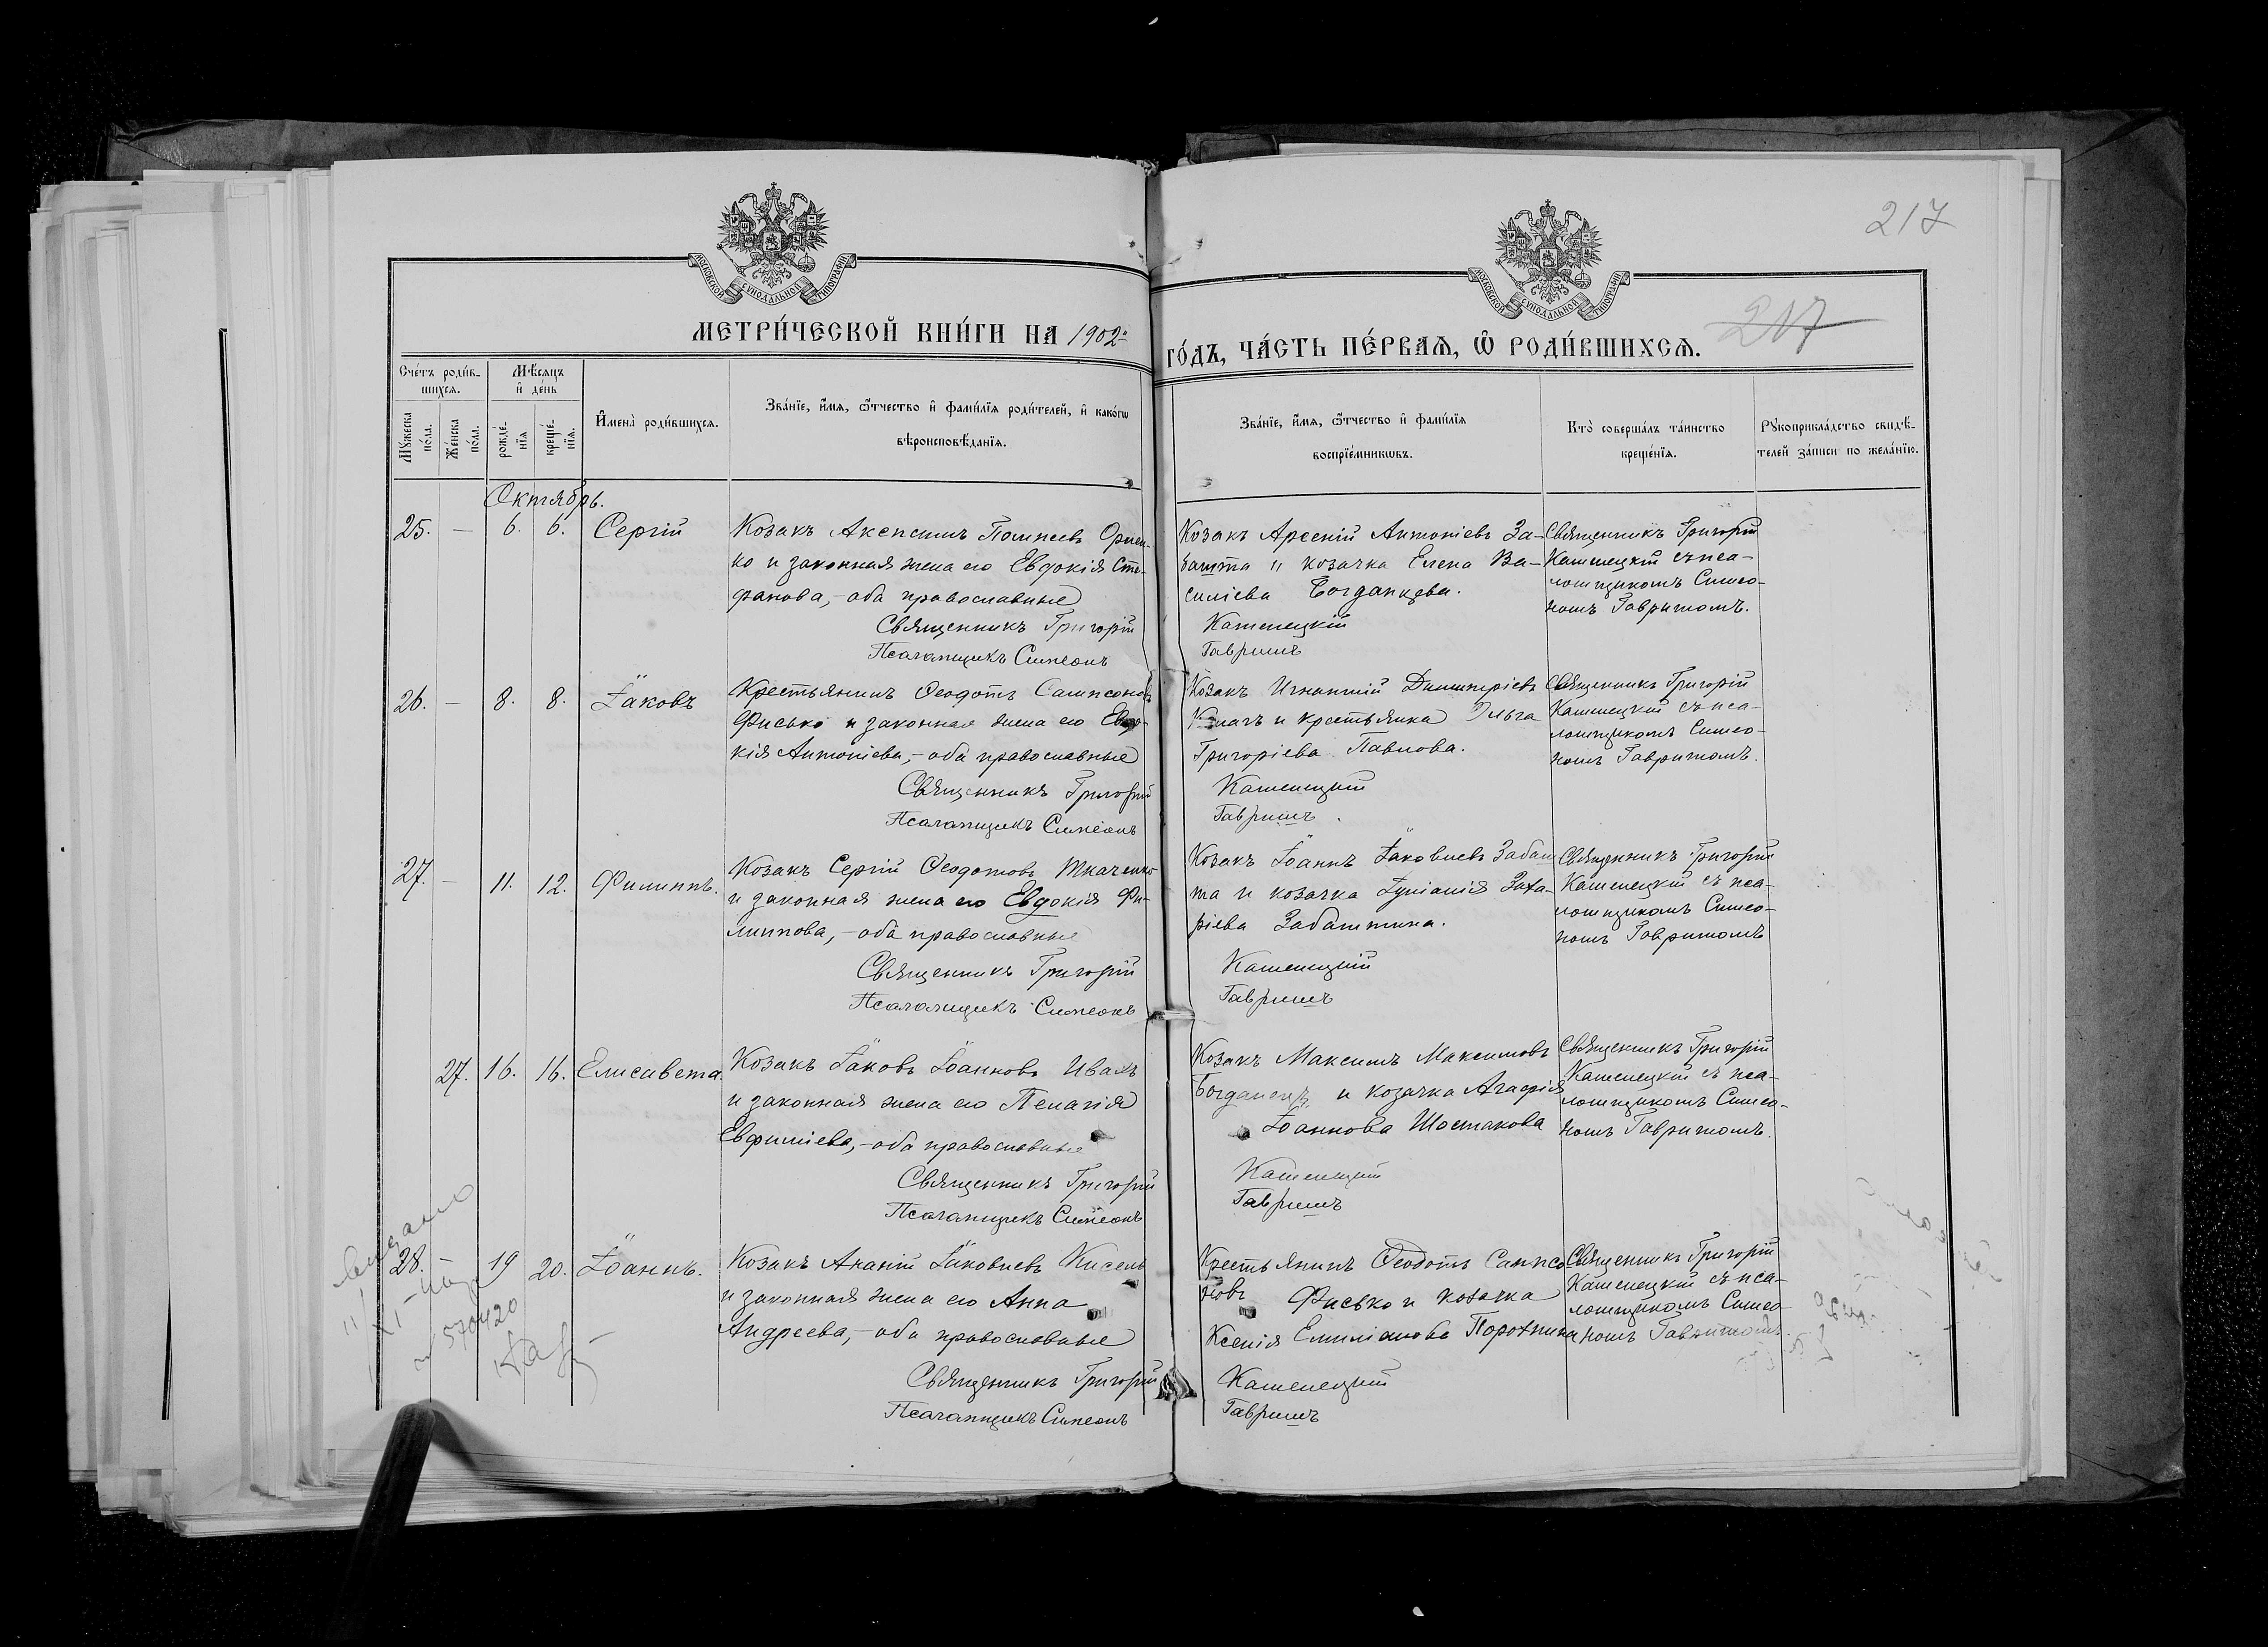 217
МОСКОВСКОЙ СѴНОДАЛЬНОЙ ТИПОГРАФІИ
МОСКОВСКОЙ СѴНОДАЛЬНОЙ ТИПОГРАФІИ
МЕТРИ́ЧЕСКОЙ КНИ́ГИ НА 1902-й
ГО́ДЪ, ЧА́СТЬ ПЕ́РВАѦ, Ѽ РОДИ́ВШИХСѦ.
217
Сче́тъ роди́в-
шихсѧ.
Мѣ́сѧцъ
и҆ де́нь
Мꙋ́жеска
по́ла.
Же́нска
по́ла.
рожде́-
нїѧ
креще́-
нїѧ.
И҆мена̀ роди́вшихсѧ.
Зва́нїе, и҆́мѧ, ѻ҆́тчество и҆ фами́лїѧ роди́телей, и҆ како́гѡ
вѣроисповѣ́данїѧ.
Зва́нїе, и҆́мѧ, ѻ҆́тчество и҆ фами́лїѧ
воспрїе́мникѡвъ.
Кто̀ соверша́лъ та́инство
креще́нїѧ.
Рꙋкоприкла́дство свидѣ́-
телей за́писи по жела́нїю.
Октябрь.
25. — 6. 6. Сергій
Козакъ Акепсимъ Помпеевъ
ко и законная жена его Евдокія Сте-
фанова, – оба православные
Священникъ Григорій
Псаломщикъ Симеонъ
Козакъ Арсеній Антоніевъ За-
башта и козачка Елена Ва-
силіева Богданцева.
Каменецкій
Гавришъ
Священникъ Григорій
Каменецкій съ пса-
ломщикомъ Симео-
номъ Гавришомъ.
26. — 8. 8. Іаковъ
Крестьянинъ Ѳеодотъ Сампсоновъ
Фисько и законная жена его Евдо-
кія Антоніева, – оба православные
Священникъ Григорій
Псаломщикъ Симеонъ
Козакъ Игнатій Димитріевъ
и крестьянка Ольга
Григоріева Павлова.
Каменецкій
Гавришъ.
Священникъ Григорій
Каменецкій съ пса-
ломщикомъ Симео-
номъ Гавришомъ.
27. — 11. 12. Филиппъ.
Козакъ Сергій Ѳеодотовъ Ткаченко
и законная жена его Евдокія Фи-
липпова, – оба православные
Священникъ Григорій
Псаломщикъ Симеонъ
Козакъ Іоаннъ Іаковлевъ Забаш
та и козачка Іуліанія Заха-
ріева Забаштина.
Каменецкій
Гавришъ
Священникъ Григорій
Каменецкій съ пса-
ломщикомъ Симео-
номъ Гавришомъ
27. 16. 16. Елисавета.
Козакъ Іаковъ Іоанновъ Ивахъ
и законная жена его Пелагія
Евфиміева, – оба православные
Священникъ Григорій
Псаломщикъ Симеонъ
Козакъ Максимъ Максимовъ
Богданецъ и козачка Агафія
Іоаннова Шостакова
Каменецкій
Гавришъ
Священникъ Григорій
Каменецкій съ пса-
ломщикомъ Симео-
номъ Гавришомъ.
28. — 19 20. Іоаннъ.
Козакъ Ананій Іаковлевъ Кисель
и законная жена его Анна
Андреева, – оба православные
Священникъ Григорій
Псаломщикъ Симеонъ
Крестьянинъ Ѳеодотъ Сампсо
новъ Фисько и козачка
Ксенія Емиліанова
Каменецкій
Гавришъ
Священникъ Григорій
Каменецкій съ пса-
ломщикомъ Симео-
номъ Гавришомъ.